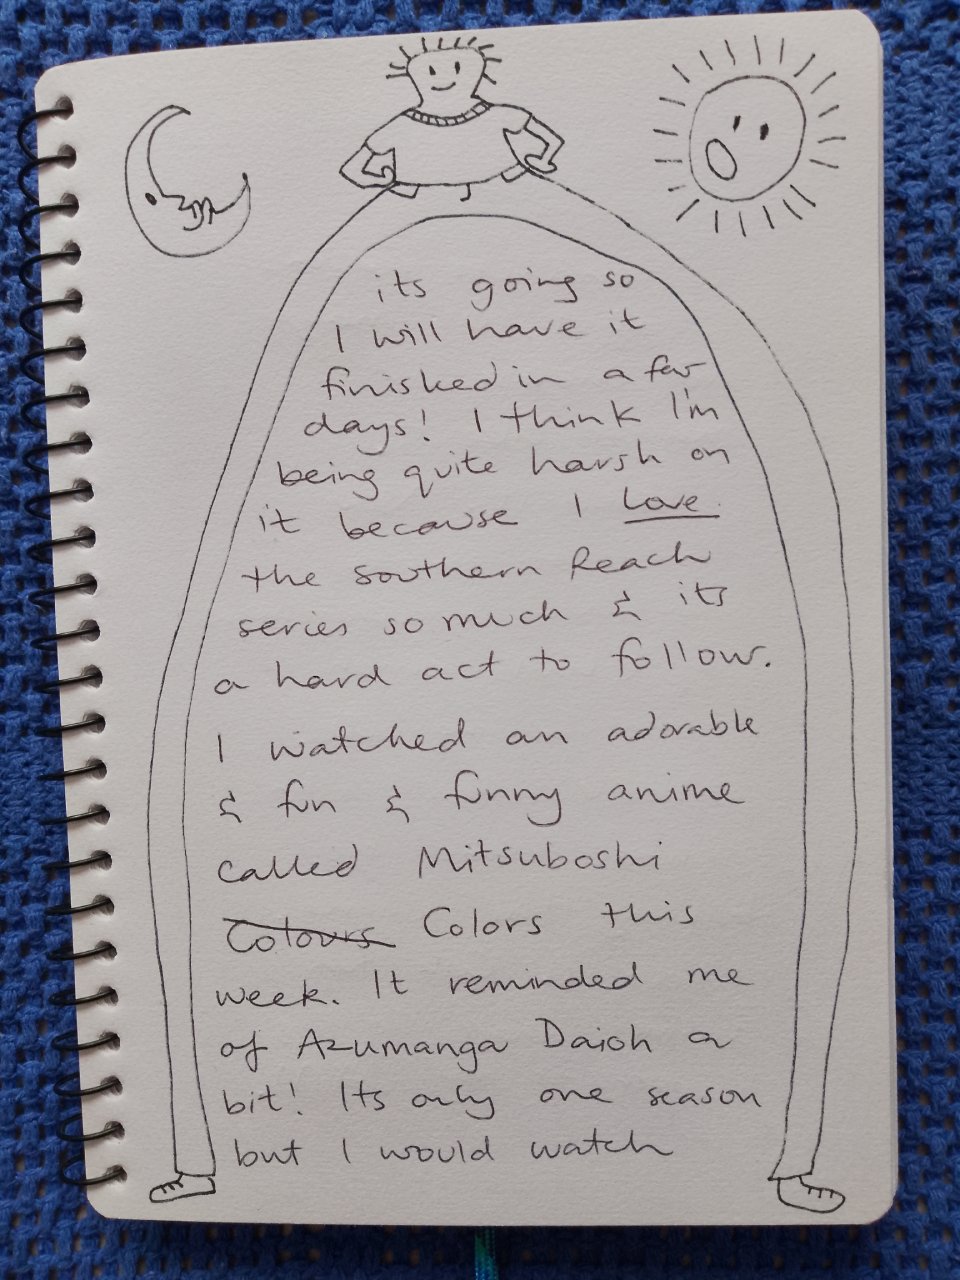 its going so
I will have it
finished in a few
days! I think I'm
being quite harsh on
it because I love
the Southern Reach
series so much & its
a hard act to follow.
I watched an adorable
& fun & funny anime
called Mitsuboshi
Colours Colors this
week. It reminded me
of Azumanga Daioh a
bit! Its only one season
but I would watch